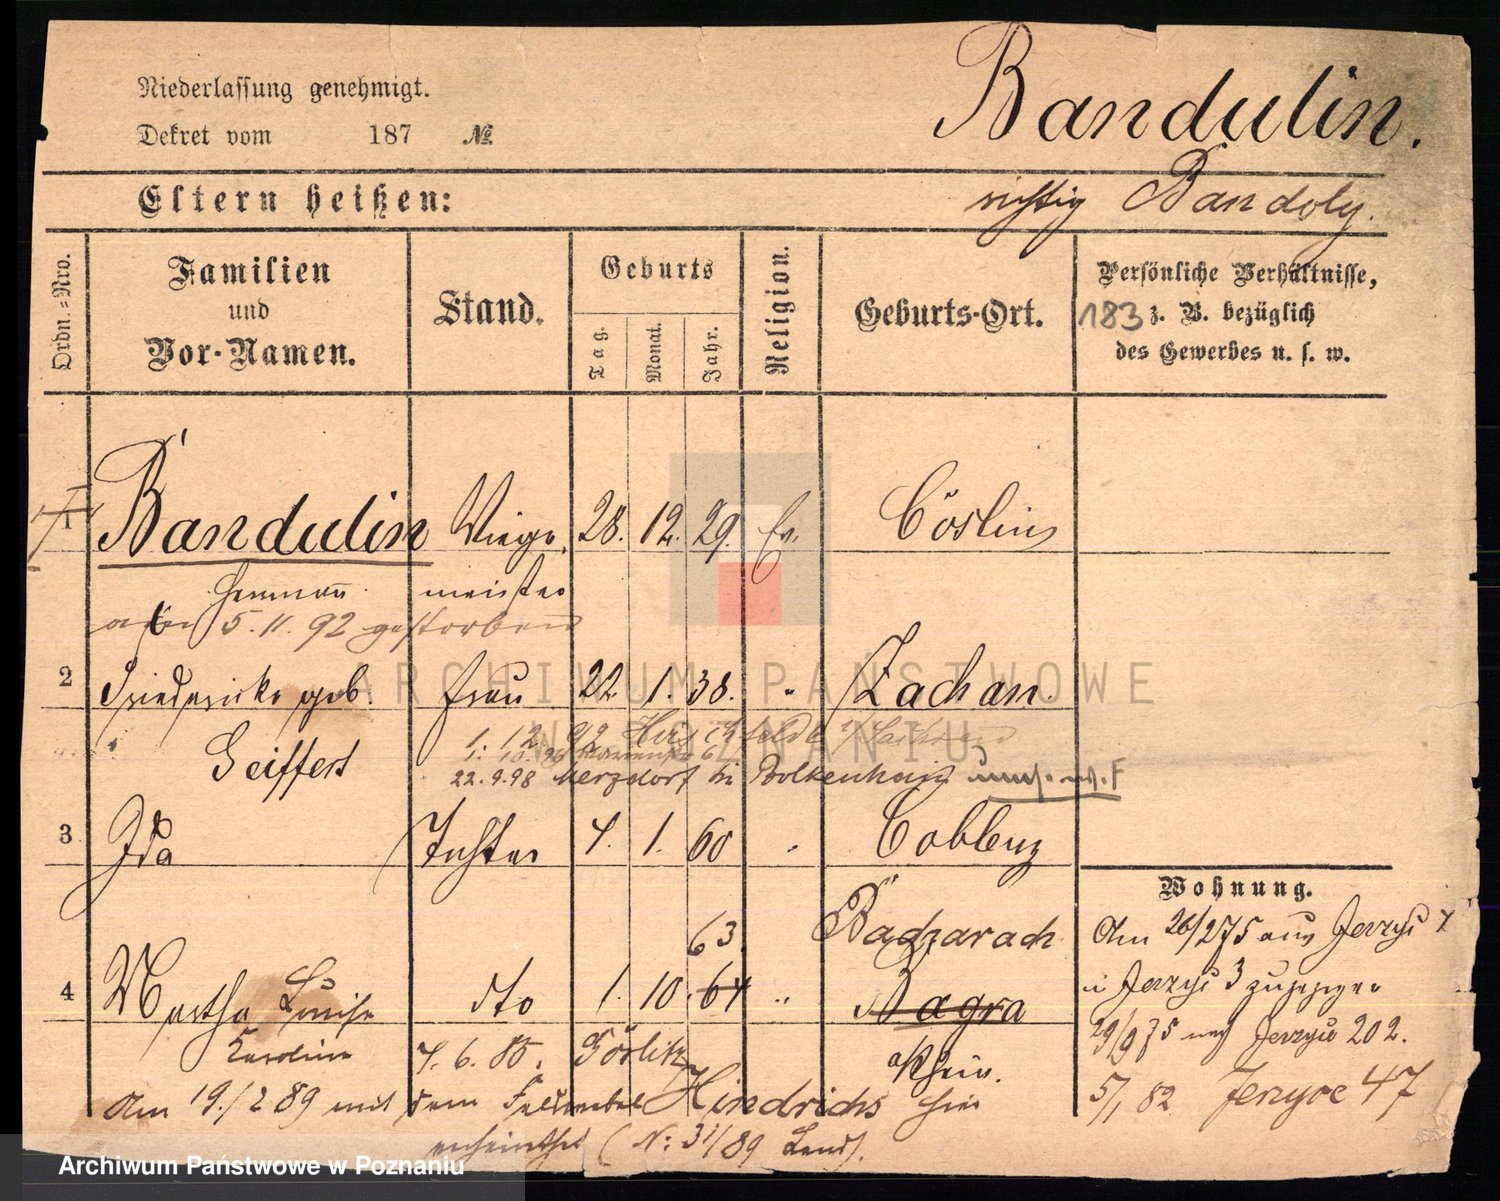 Niederlassung genehmigt.
Dekret vom 187 №
Bandulin.
Eltern heißen:
richtig Bandoly.
Ordn.-Nro.
Familien
und
Vor-Namen.
Stand.
Geburts
Tag.
Monat.
Jahr.
Religion.
Geburts-Ort.
Persönliche Verhältnisse,
183 z. B. bezüglich
des Gewerbes u. s. w.
1 Bandulin Wiege 28. 12. 29. Ev. Cöslin
Hermann meister
am 5. 11. 92 gestorben
2 Friedericke geb. Frau 22. 1. 38. " Zachan
Geiffert
1. 12. 92 Hirschfelde
1. 10. 96
22.9.98 Merzdorf Bolkenhain
3 Ida Tochter 4. 1. 60 " Coblenz
Wohnung.
63. Bacharach
4 Martha Luise dto 1. 10. 64 " Bagra
Karoline 4. 6. 85. Görlitz Rhein.
Am 26/2 75 aus Jerzyce
in Jerzyce 3 zugezogen
29/9 75 nach Jerzyce 202.
5/1 82 Jerzyce 47
Am 19./2 89 mit dem Feldwebel Hindrichs hier
verheirathet (N: 31/89 Land).
ARCHIWUM PAŃSTWOWE
W POZNANIU
Archiwum Państwowe w Poznaniu